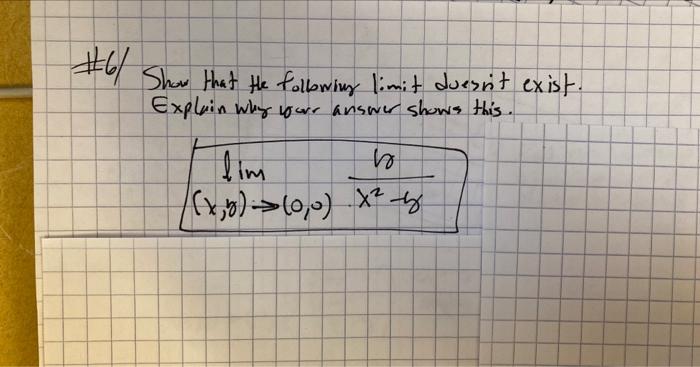 #6/ Show that the following limit doesn't exist.
Explain why your answer shows this.
lim y
(x,y)→(0,0) x² - y